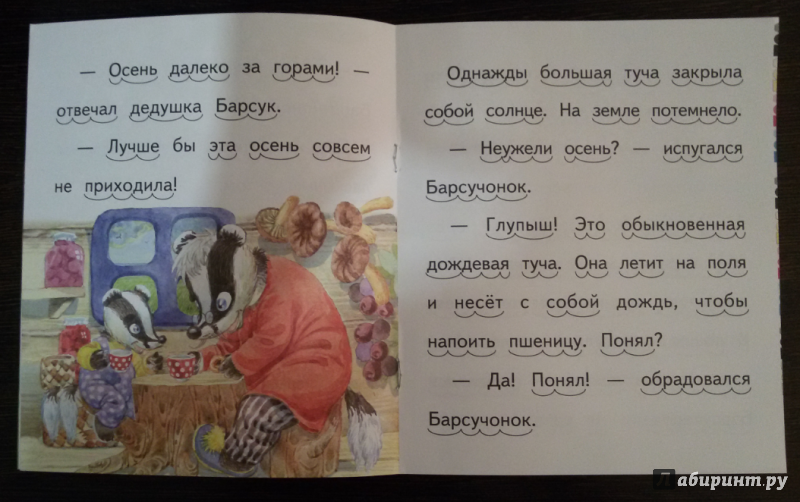 — Осень далеко за горами! —
отвечал дедушка Барсук.
— Лучше бы эта осень совсем
не приходила!
Однажды большая туча закрыла
собой солнце. На земле потемнело.
— Неужели осень? — испугался
Барсучонок.
— Глупыш! Это обыкновенная
дождевая туча. Она летит на поля
и несёт с собой дождь, чтобы
напоить пшеницу. Понял?
— Да! Понял! — обрадовался
Барсучонок.
Лабиринт.ру